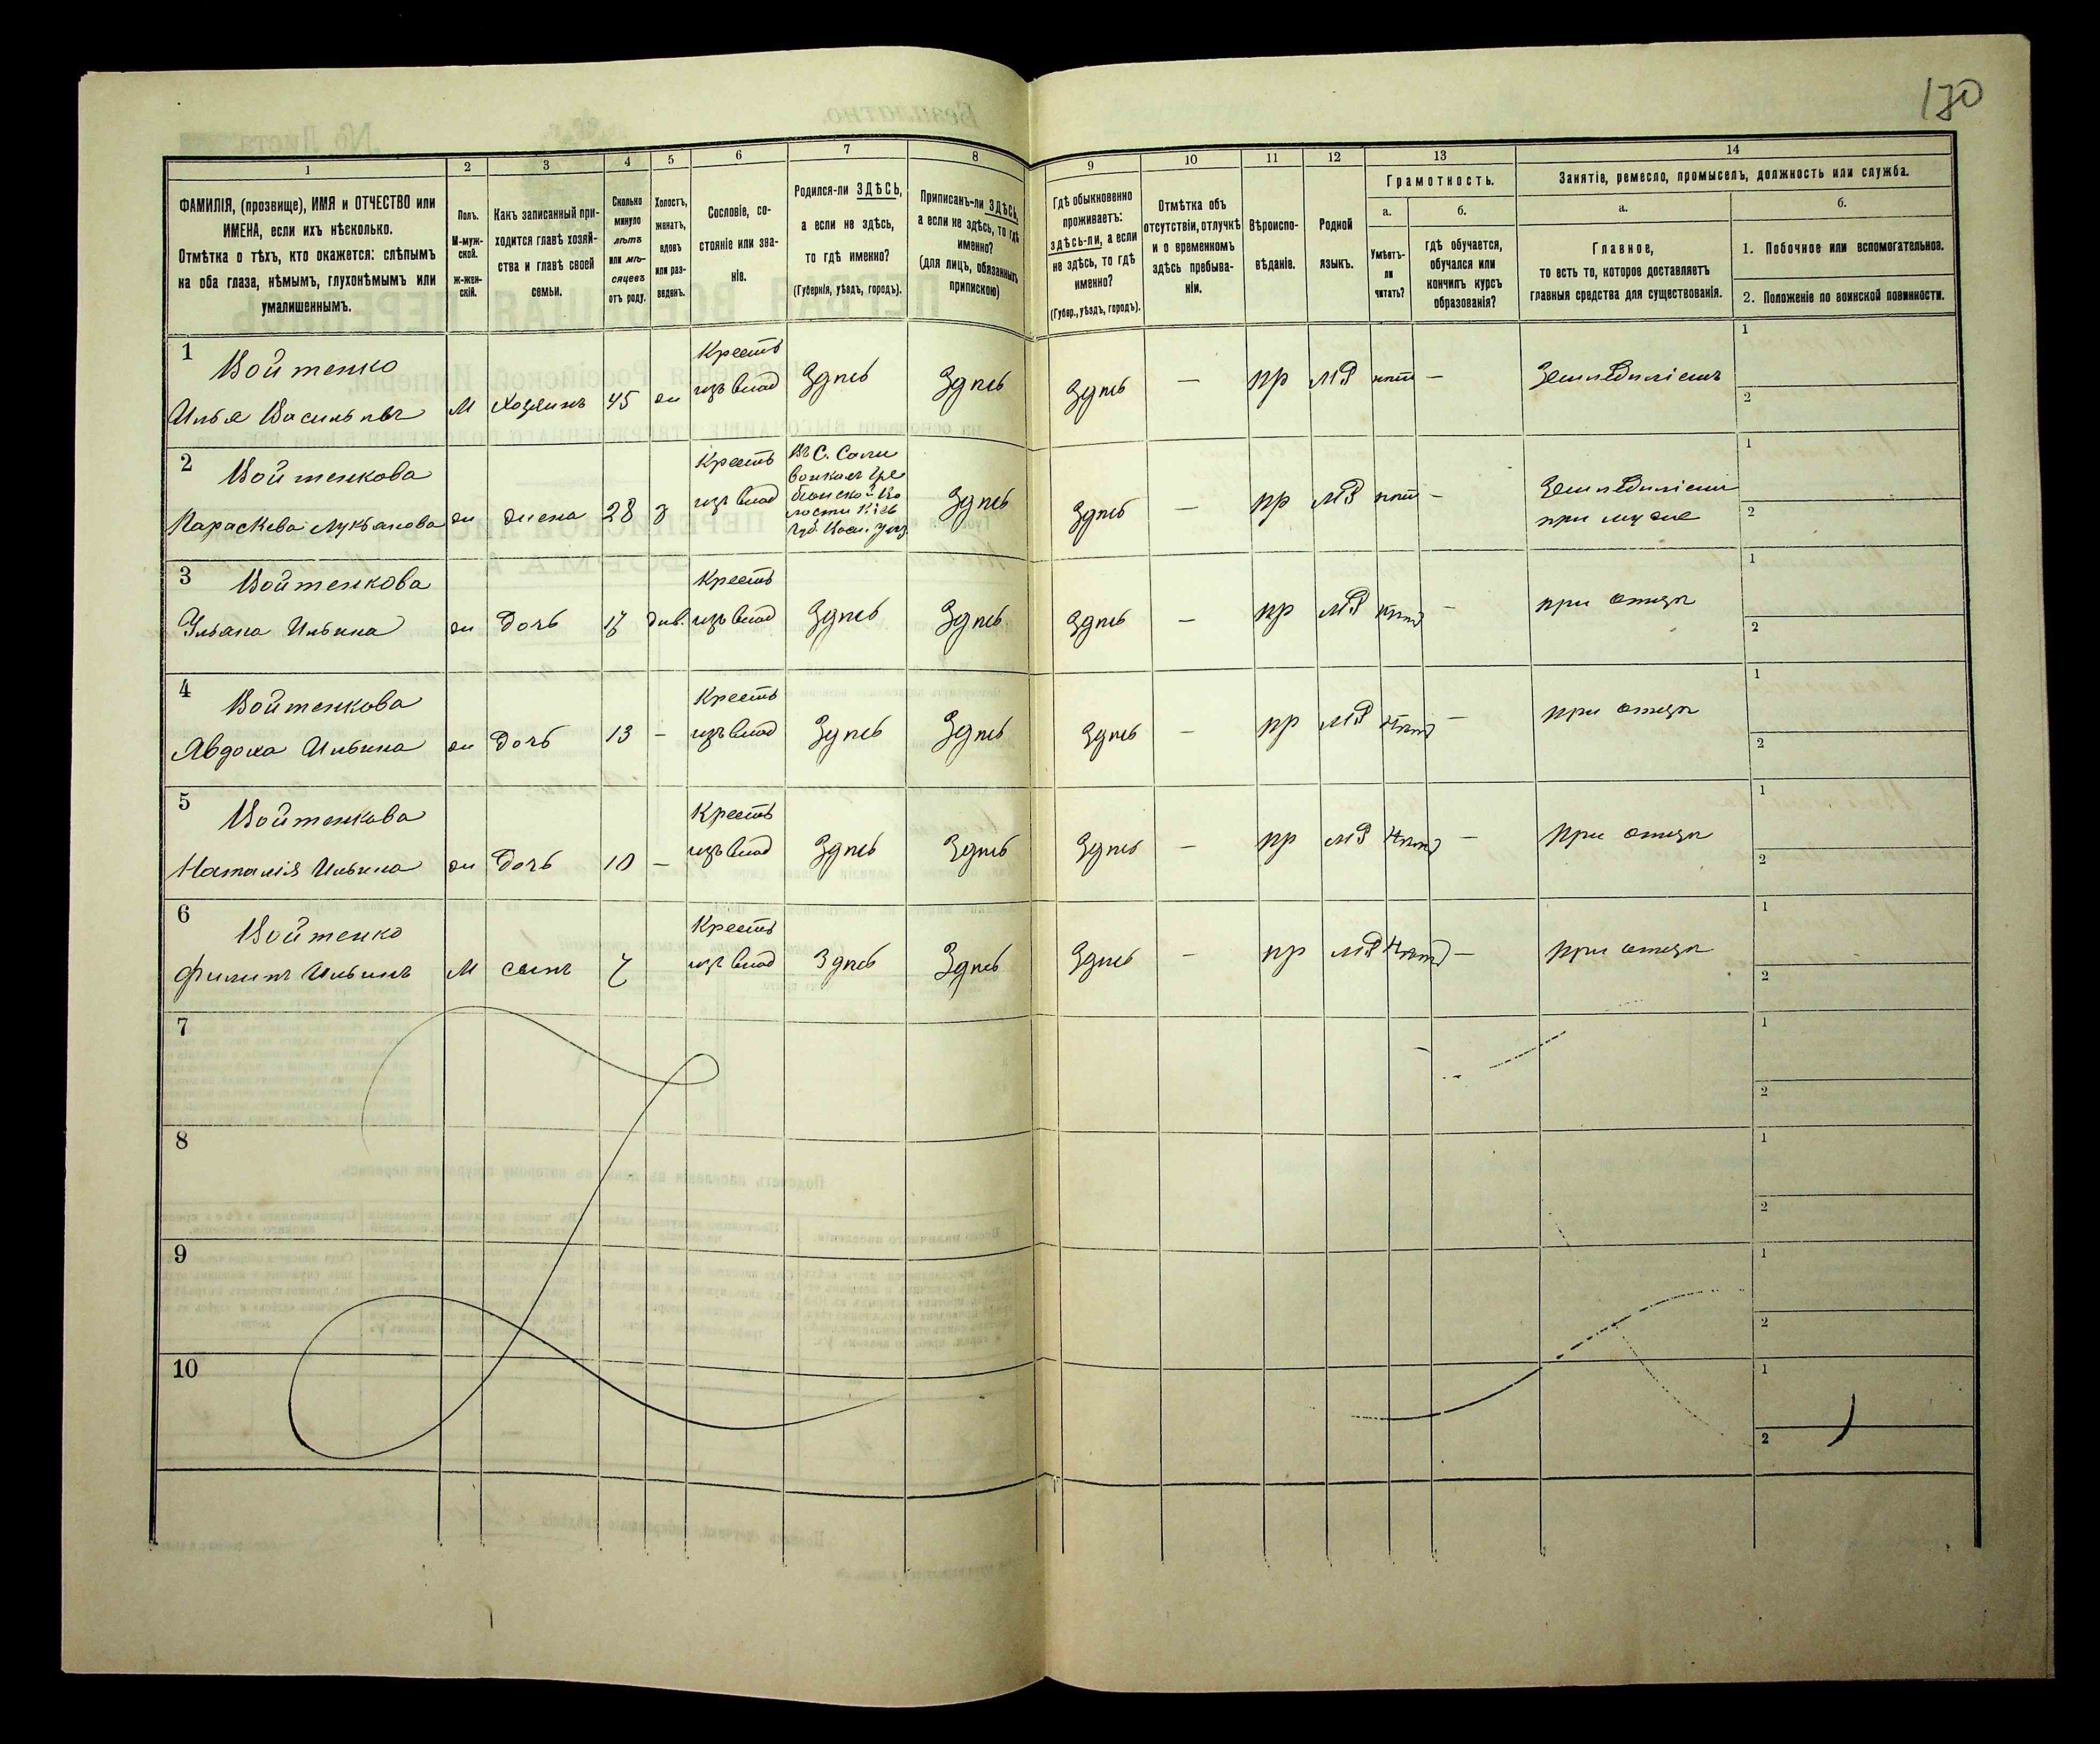 170
1
2
3
4
5
6
7
8
9
10
11
12
13
14
ФАМИЛІЯ, (прозвище), ИМЯ и ОТЧЕСТВО или
ИМЕНА, если ихъ нѣсколько.
Отмѣтка о тѣхъ, кто окажется: слѣпымъ
на оба глаза, нѣмымъ, глухонѣмымъ или
умалишеннымъ.
Полъ.
М-муж-
ской.
Ж-жен-
скій.
Какъ записанный при-
ходится главѣ хозяй-
ства и главѣ своей
семьи.
Сколько
минуло
лѣтъ
или мѣ-
сяцевъ
отъ роду.
Холостъ,
женатъ,
вдовъ
или раз-
веденъ.
Сословіе, со-
стояніе или зва-
ніе.
Родился-ли ЗДѢСЬ,
а если не здѣсь,
то гдѣ именно?
(Губернія, уѣздъ, городъ).
Приписанъ-ли ЗДѢСЬ,
а если не здѣсь, то гдѣ
именно?
(для лицъ, обязанныхъ
припискою)
Гдѣ обыкновенно
проживаетъ:
здѣсь-ли, а если
не здѣсь, то гдѣ
именно?
(Губер., уѣздъ, городъ).
Отмѣтка объ
отсутствіи, отлучкѣ
и о временномъ
здѣсь пребыва-
ніи.
Вѣроиспо-
вѣданіе.
Родной
языкъ.
Грамотность.
а.
Умѣетъ-
ли
читать?
б.
гдѣ обучается,
обучался или
кончилъ курсъ
образованія?
Занятіе, ремесло, промыселъ, должность или служба.
а.
Главное,
то есть то, которое доставляетъ
главныя средства для существованія.
б.
1. Побочное или вспомогательное.
2. Положеніе по воинской повинности.
1
Войтенко
Илья Васильевъ М Хозяинъ 45 ж
Крестъ
изъ влад
Здѣсь Здѣсь Здѣсь — пр МР нѣт — Земледѣліемъ
1
2
2
Войтенкова
Параскева Лукьянова ж жена 28 з
Крестъ
изъ влад
Въ С.
Здѣсь Здѣсь — пр МР нѣт —
Земледѣліем
при муже
1
2
3
Войтенкова
Ульяна Ильина ж дочь 17 дѣв.
Крестъ
изъ влад
Здѣсь Здѣсь Здѣсь — пр МР нѣт — при отцѣ
1
2
4
Войтенкова
Явдоха Ильина ж дочь 13 —
Крестъ
изъ влад
Здѣсь Здѣсь Здѣсь — пр МР нѣт — при отцѣ
1
2
5
Войтенкова
Наталія Ильина ж дочь 10 —
Крестъ
изъ влад
Здѣсь Здѣсь Здѣсь — пр МР нѣт — при отцѣ
1
2
6
Войтенко
Филипъ Ильинъ М сынъ 7
Крестъ
изъ влад
Здѣсь Здѣсь Здѣсь — пр МР нѣт — при отцѣ
1
2
7
1
2
8
1
2
9
1
2
10
1
2